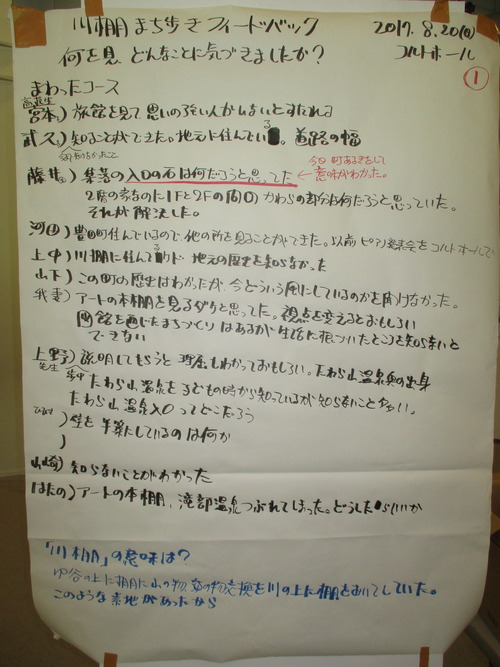 川棚まち歩きフィードバック 2017.8.20(日)
何を見、どんなことに気づきましたか? コルトホール
①
まわったコース
宮本) 旅館を見て思いの強い人がいないとすたれる
武久) 知ることができた。地元に住んでいる 道路の幅
今まで知らなかったこと
藤井) 集落の入口の石は何だろうと思ってた ← 今日町あるきをして
意味がわかった。
2階の家なのに1Fと2Fの間の かわらの部分は何だろうと思っていた。
それが解決した。
河田) 豊田町住んでいるので、他の所を見ることができた。以前ピアノ発表会をコルトホールで
上中) 川棚に住んで 地元の歴史を知らなかった
山下) この町の歴史はわかったが、今どういう風にしているのかを聞けなかった。
我妻) アートの本棚を見るダケと思ってた。視点を変えるとおもしろい
図館を通じたまちづくりはあるが生活に根づいたところを知らないと
できない
上野) 説明してもらうと 理解もわかっておもしろい。たわら山温泉奥の出身
先生
たわら山温泉を子どもの時から知っているが知らないこと多い。
たわら山温泉入口ってどこだろう
) 壁を 黒にしているのは何か
)
山崎) 知らないことがわかった
はたの) アートの本棚、滝部温泉つぶれてしまった。どうしたらいいか
「川棚」の意味は?
ゆ谷の上に棚に山の物、海の物物交換を川の上に棚をおいてしていた。
このような素地があったから